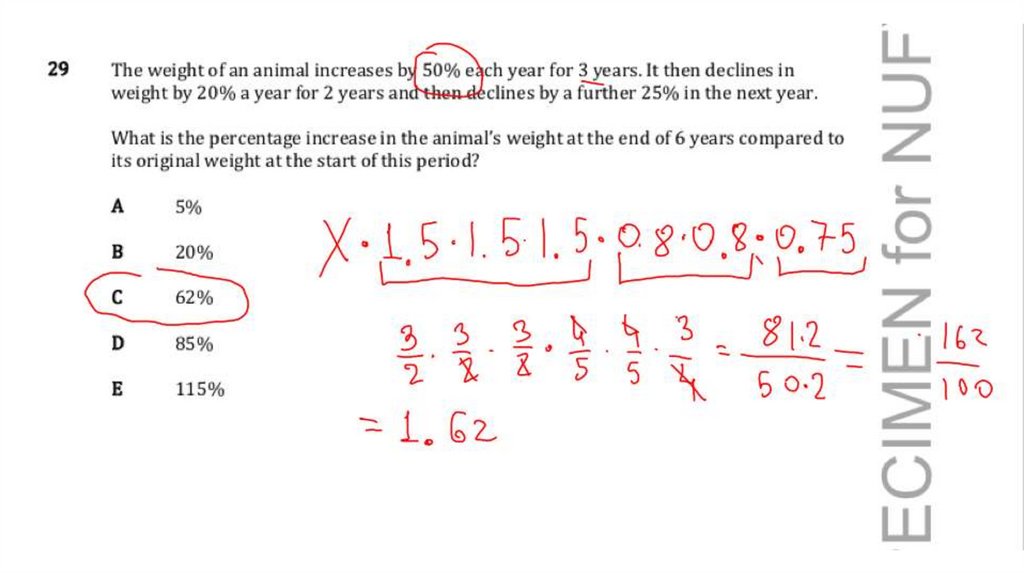 29 The weight of an animal increases by 50% each year for 3 years. It then declines in
weight by 20% a year for 2 years and then declines by a further 25% in the next year.
What is the percentage increase in the animal's weight at the end of 6 years compared to
its original weight at the start of this period?
A 5%
B 20%
C 62%
D 85%
E 115%
X · 1.5 · 1.5 1.5 · 0.8 · 0.8 · 0.75
3/2 · 3/2 · 3/2 · 4/5 · 4/5 · 3/4 = 81.2/50.2 = 162/100
= 1.62
ECIMEN for NUF